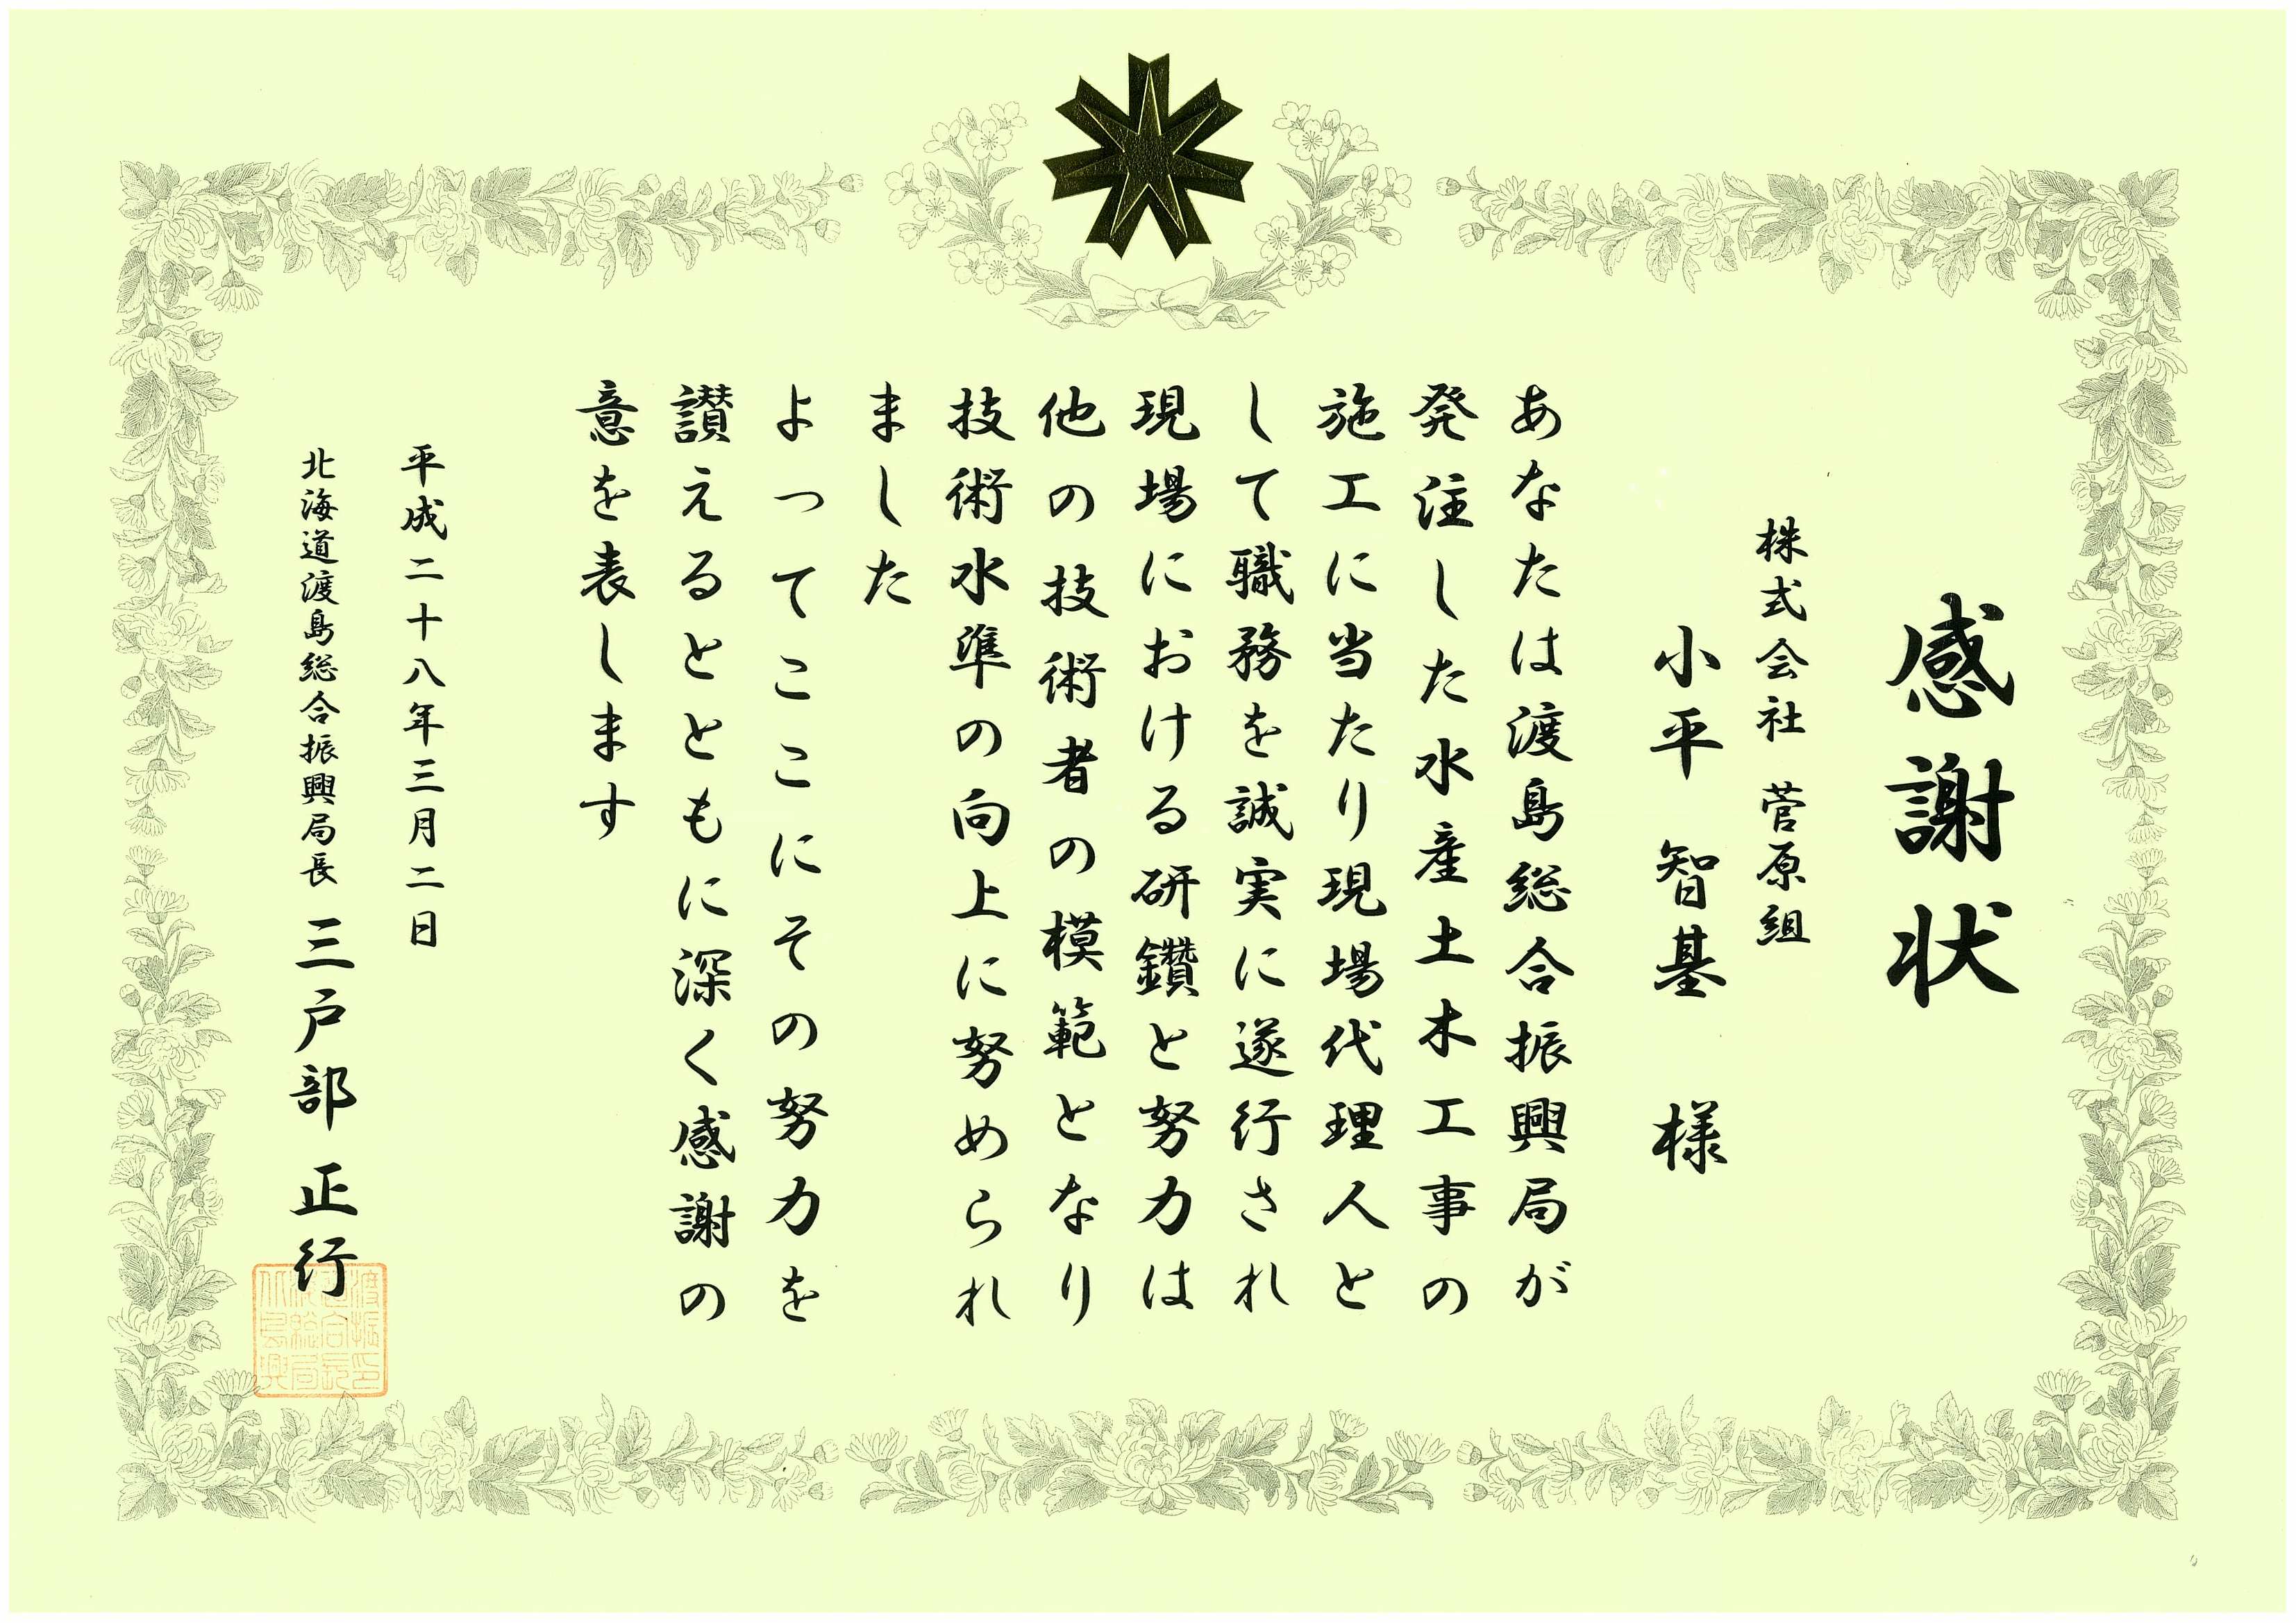 感謝状
株式会社 菅原組
小平 智基 様
あなたは渡島総合振興局が
発注した水産土木工事の
施工に当たり現場代理人と
して職務を誠実に遂行され
現場における研鑽と努力は
他の技術者の模範となり
技術水準の向上に努められ
ました
よってここにその努力を
讃えるとともに深く感謝の
意を表します
平成二十八年三月二日
北海道渡島総合振興局長 三戸部 正行